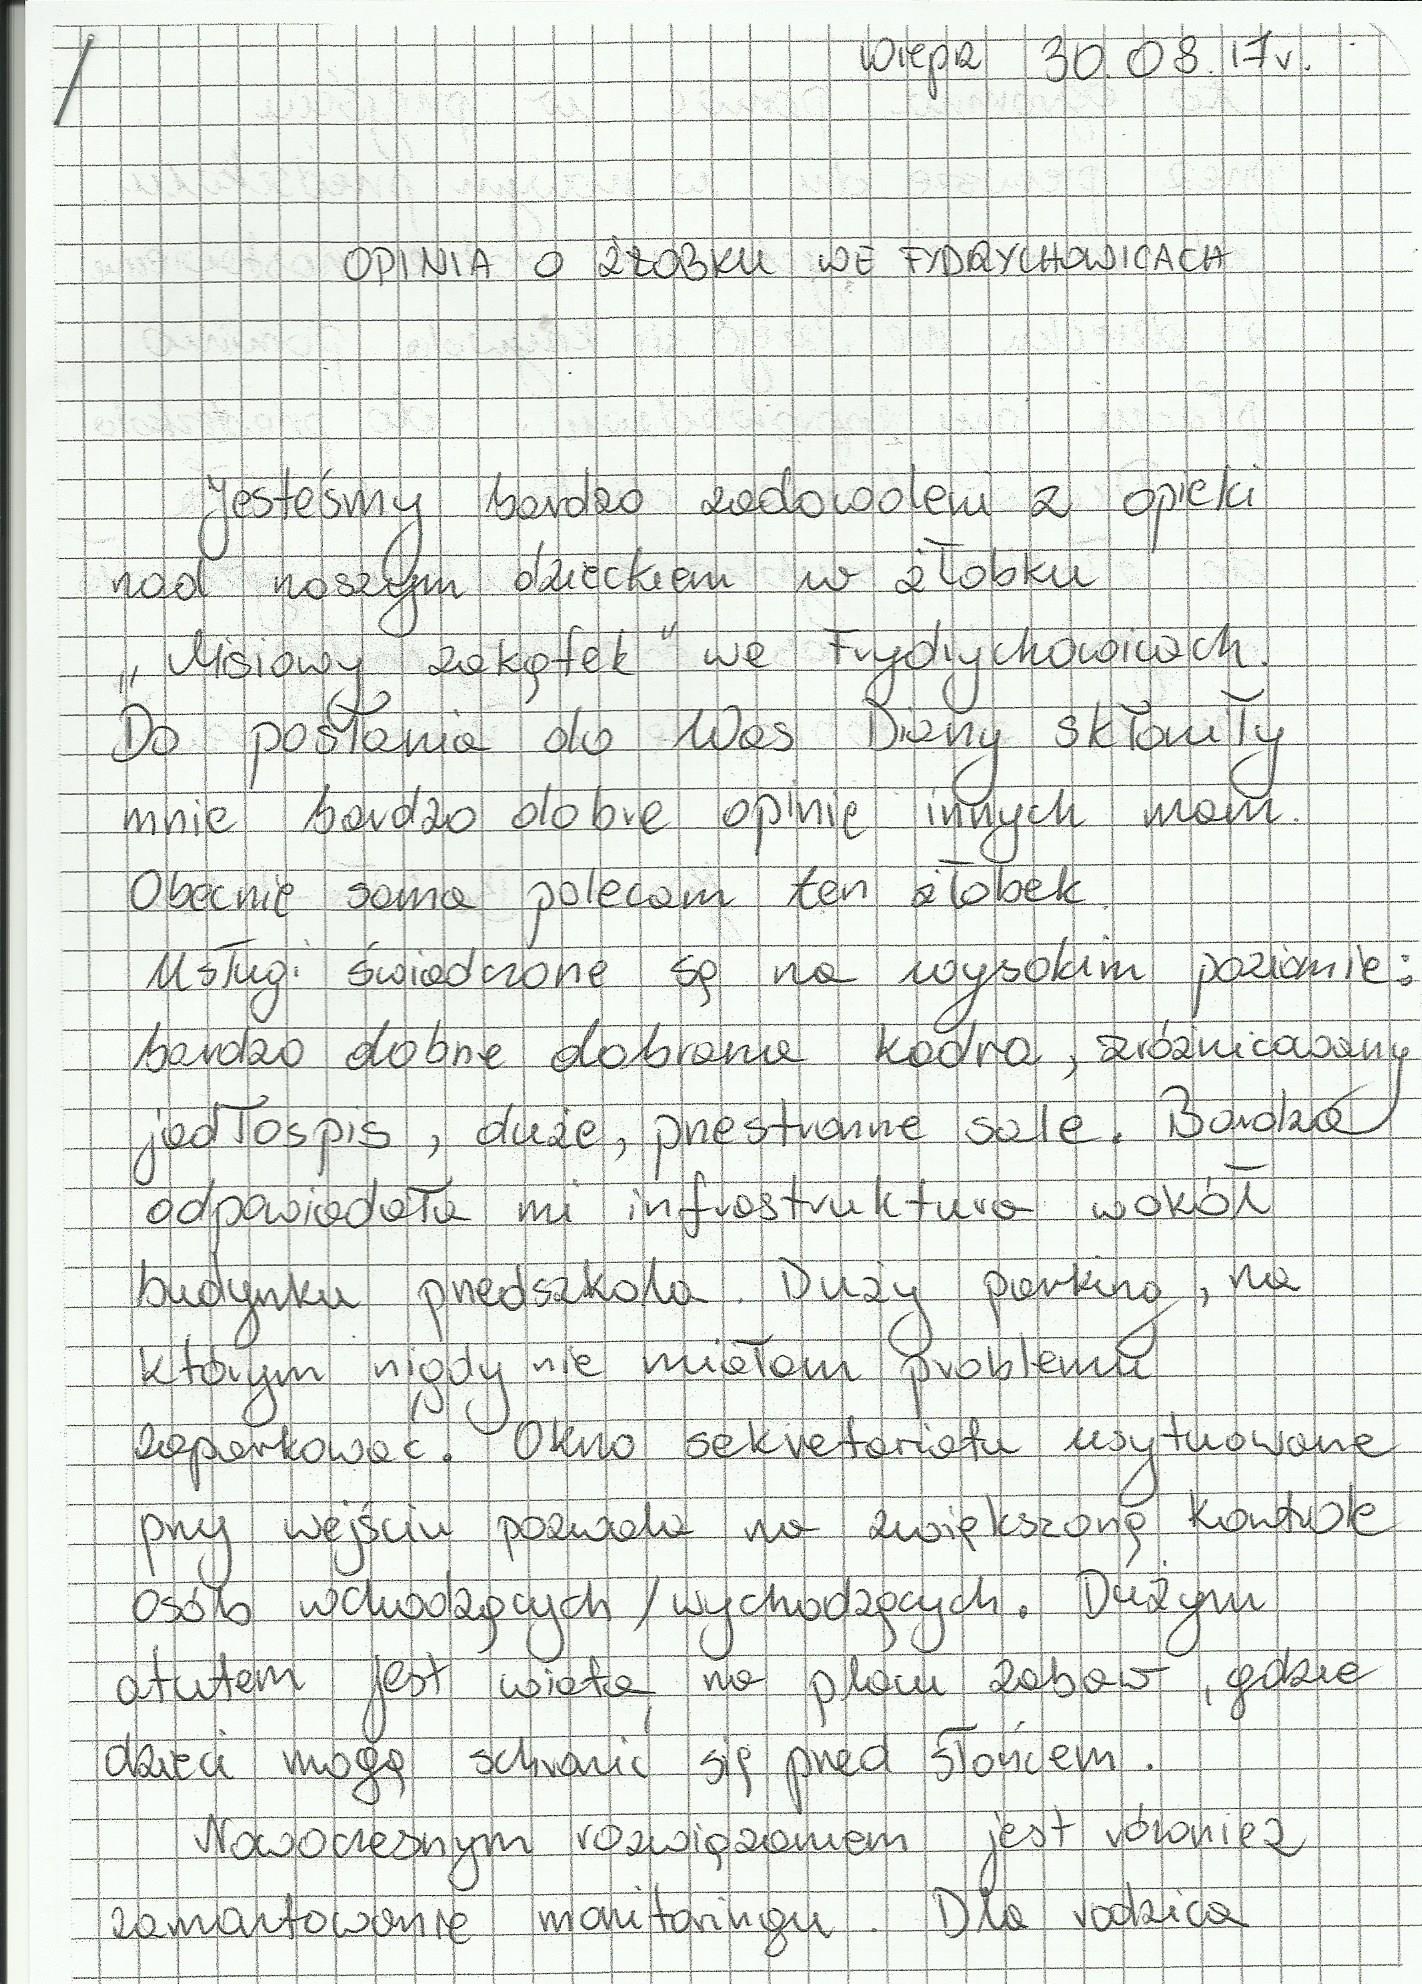 Wieprz 30.08.17r.
OPINIA O ŻŁOBKU WE FYDRYCHOWICACH
Jesteśmy bardzo zadowoleni z opieki
nad naszym dzieckiem w żłobku
„Misiowy zakątek" we Frydrychowicach.
Do posłania do Was Diany skłoniły
mnie bardzo dobre opinie innych mam.
Obecnie sama polecam ten żłobek.
Usługi świadczone są na wysokim poziomie:
bardzo dobrze dobrana kadra, zróżnicowany
jadłospis, duże, przestronne sale. Bardzo
odpowiadała mi infrastruktura wokół
budynku przedszkola. Duży parking, na
którym nigdy nie miałam problemu
zaparkować. Okno sekretariatu usytuowane
przy wejściu pozwala na zwiększoną kontrole
osób wchodzących/wychodzących. Dużym
atutem jest wiata na placu zabaw, gdzie
dzieci mogą schronić się przed słońcem.
Nowoczesnym rozwiązaniem jest również
zamontowanie monitoringu. Dla rodzica